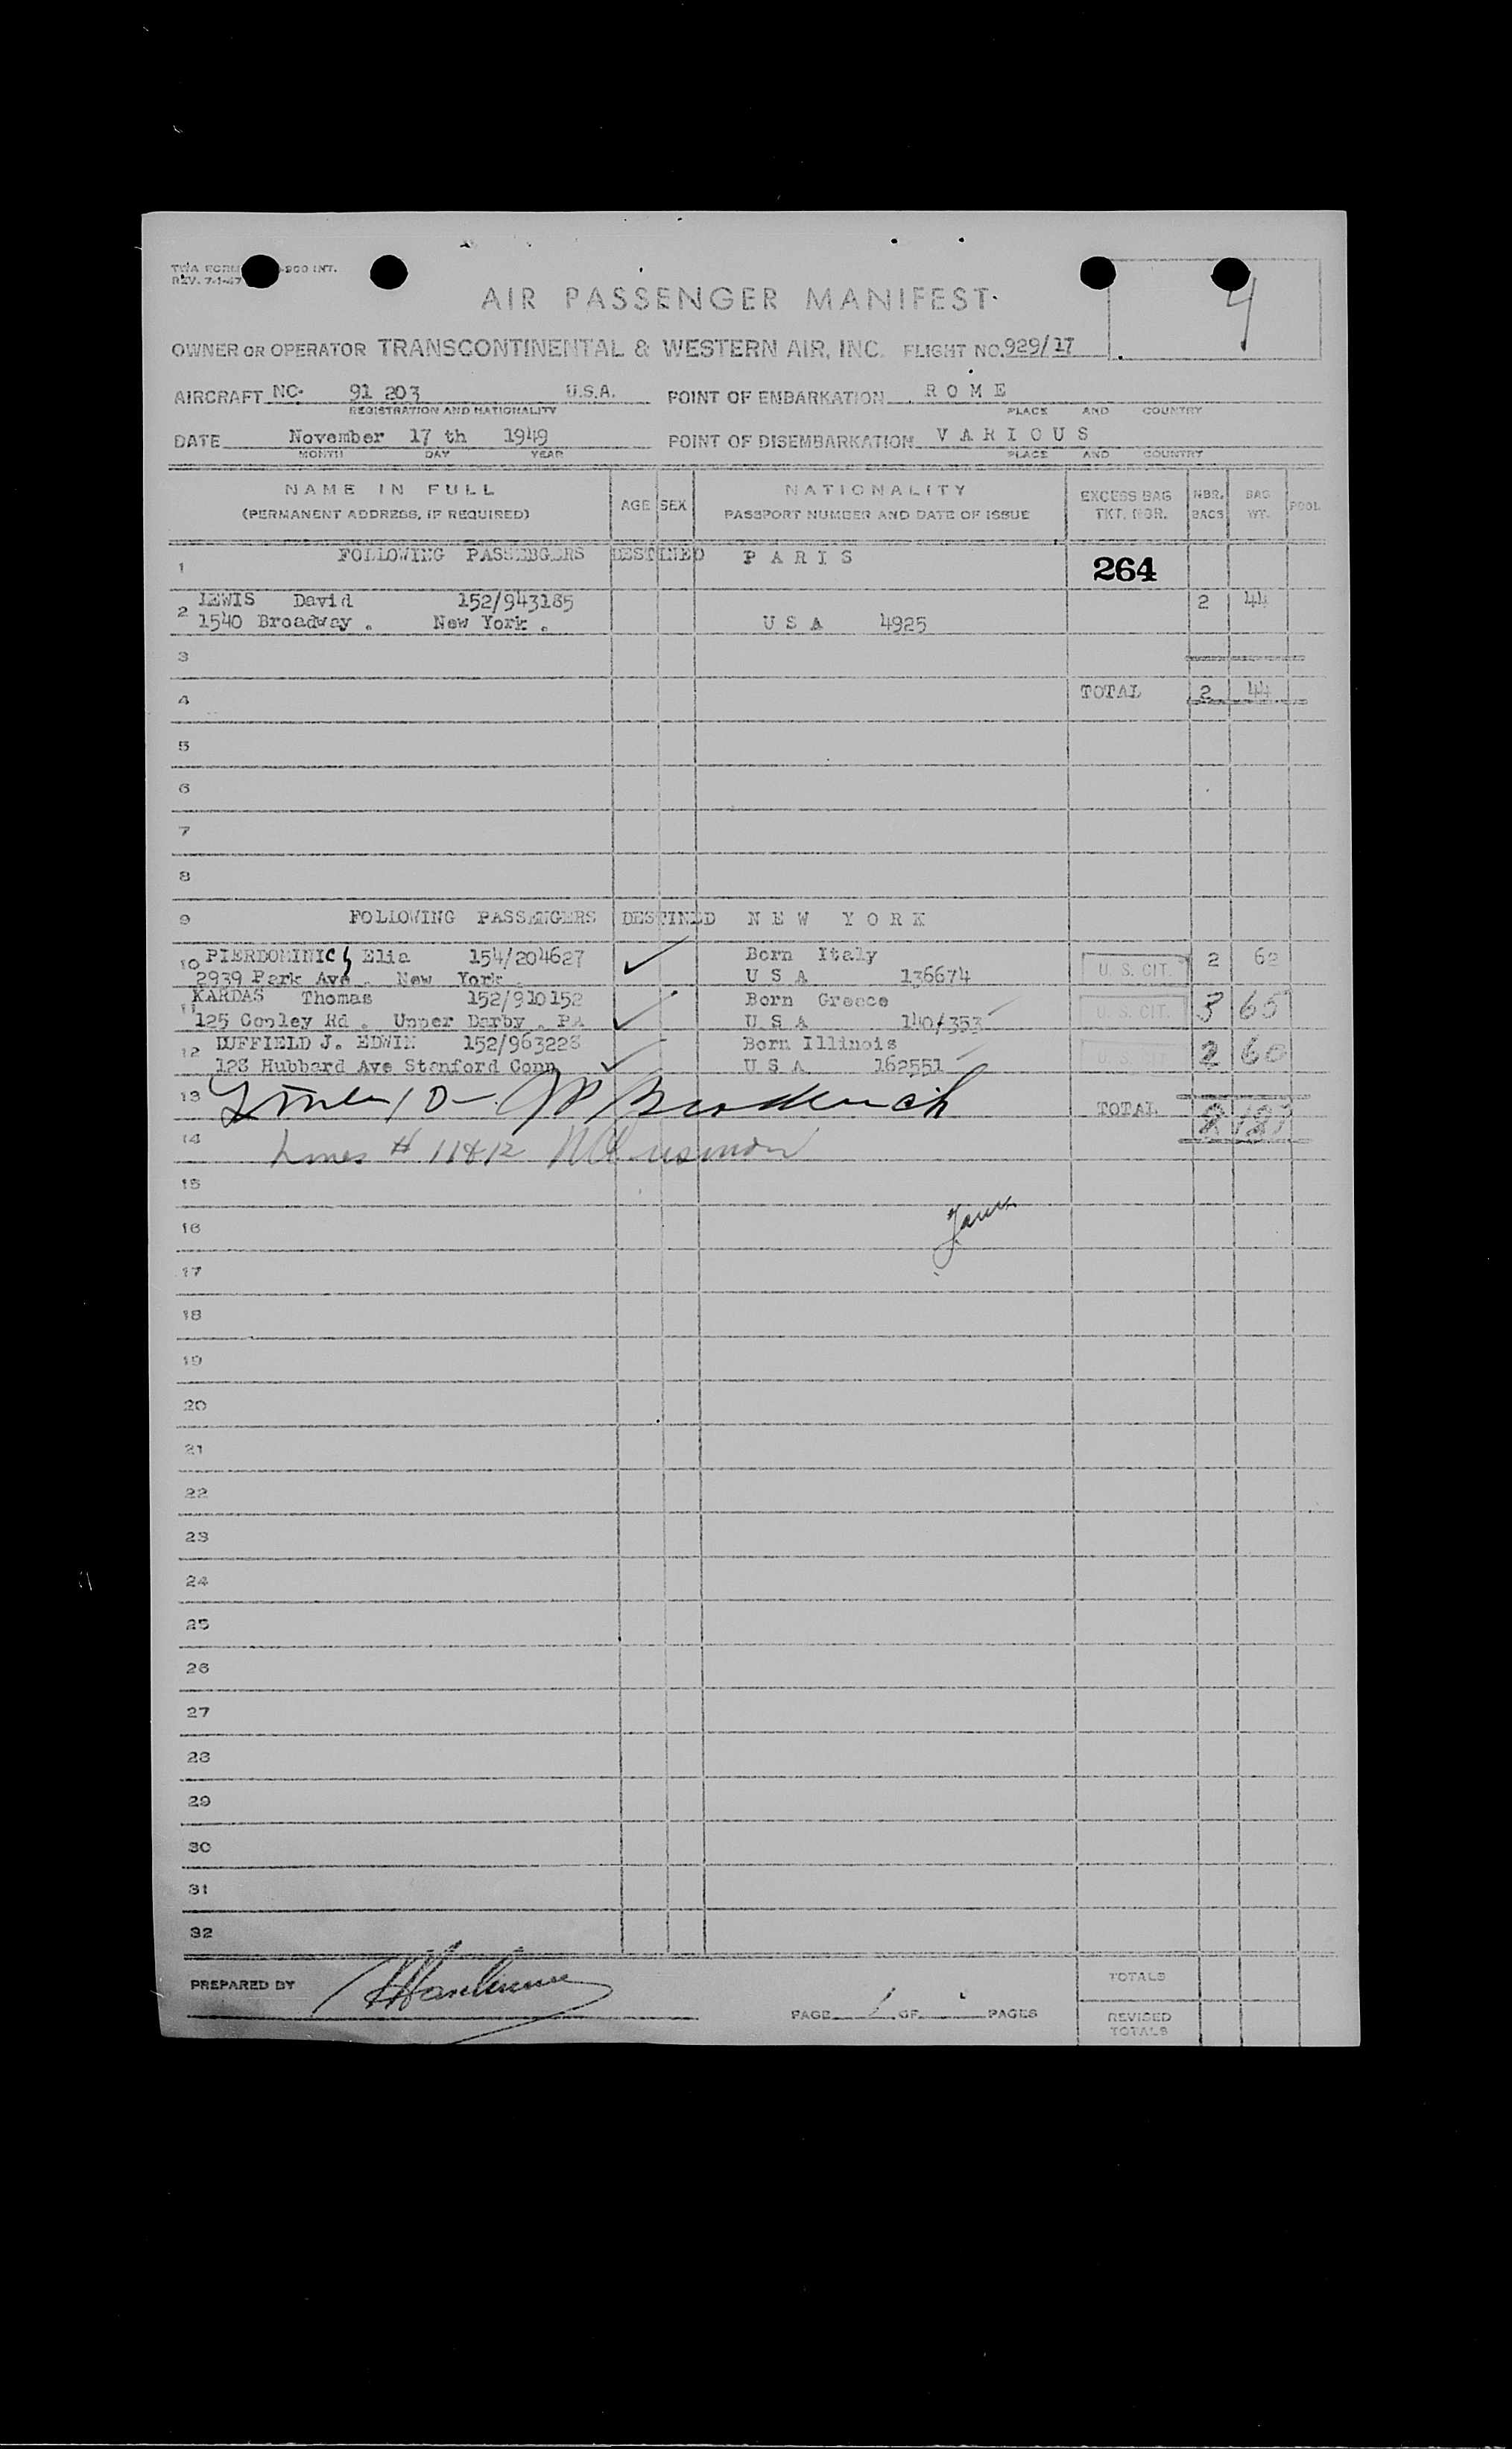 TWA FORM -200 INT.
REV. 7-1-47
4
AIR PASSENGER MANIFEST
OWNER OR OPERATOR TRANSCONTINENTAL & WESTERN AIR, INC. FLIGHT NO. 929/17
AIRCRAFT NC. 91 203 U.S.A. POINT OF EMBARKATION R O M E
REGISTRATION AND NATIONALITY PLACE AND COUNTRY
DATE November 17 th 1949 POINT OF DISEMBARKATION V A R I O U S
MONTH DAY YEAR PLACE AND COUNTRY
NAME IN FULL
(PERMANENT ADDRESS, IF REQUIRED) AGE SEX NATIONALITY
PASSPORT NUMBER AND DATE OF ISSUE EXCESS BAG
TKT. NBR. NBR.
BAGS BAG
WT. POOL
1 FOLLOWING PASSEBGERS DESTINED P A R I S 264
2 LEWIS David 152/943185 2 44
1540 Broadway . New York . U S A 4925
3
4 TOTAL 2 44
5
6
7
8
9 FOLLOWING PASSENGERS DESTINED N E W Y O R K
10 PIERDOMINICI Elia 154/204627 Born Italy U. S. CIT. 2 62
2939 Park Ave . New York . U S A 136674
11 KARDAS Thomas 152/910152 Born Greece U. S. CIT. 3 65
125 Conley Rd . Upper Darby . PA U S A 140/353
12 DUFFIELD J. EDWIN 152/963228 Born Illinois U. S. CIT. 2 60
128 Hubbard Ave Stamford Conn U S A 162551
13 Line 10 - JP Broderick TOTAL
14 Lines # 11&12
15
16
17
18
19
20
21
22
23
24
25
26
27
28
29
30
31
32
PREPARED BY
PAGE 1 OF PAGES
TOTALS
REVISED
TOTALS